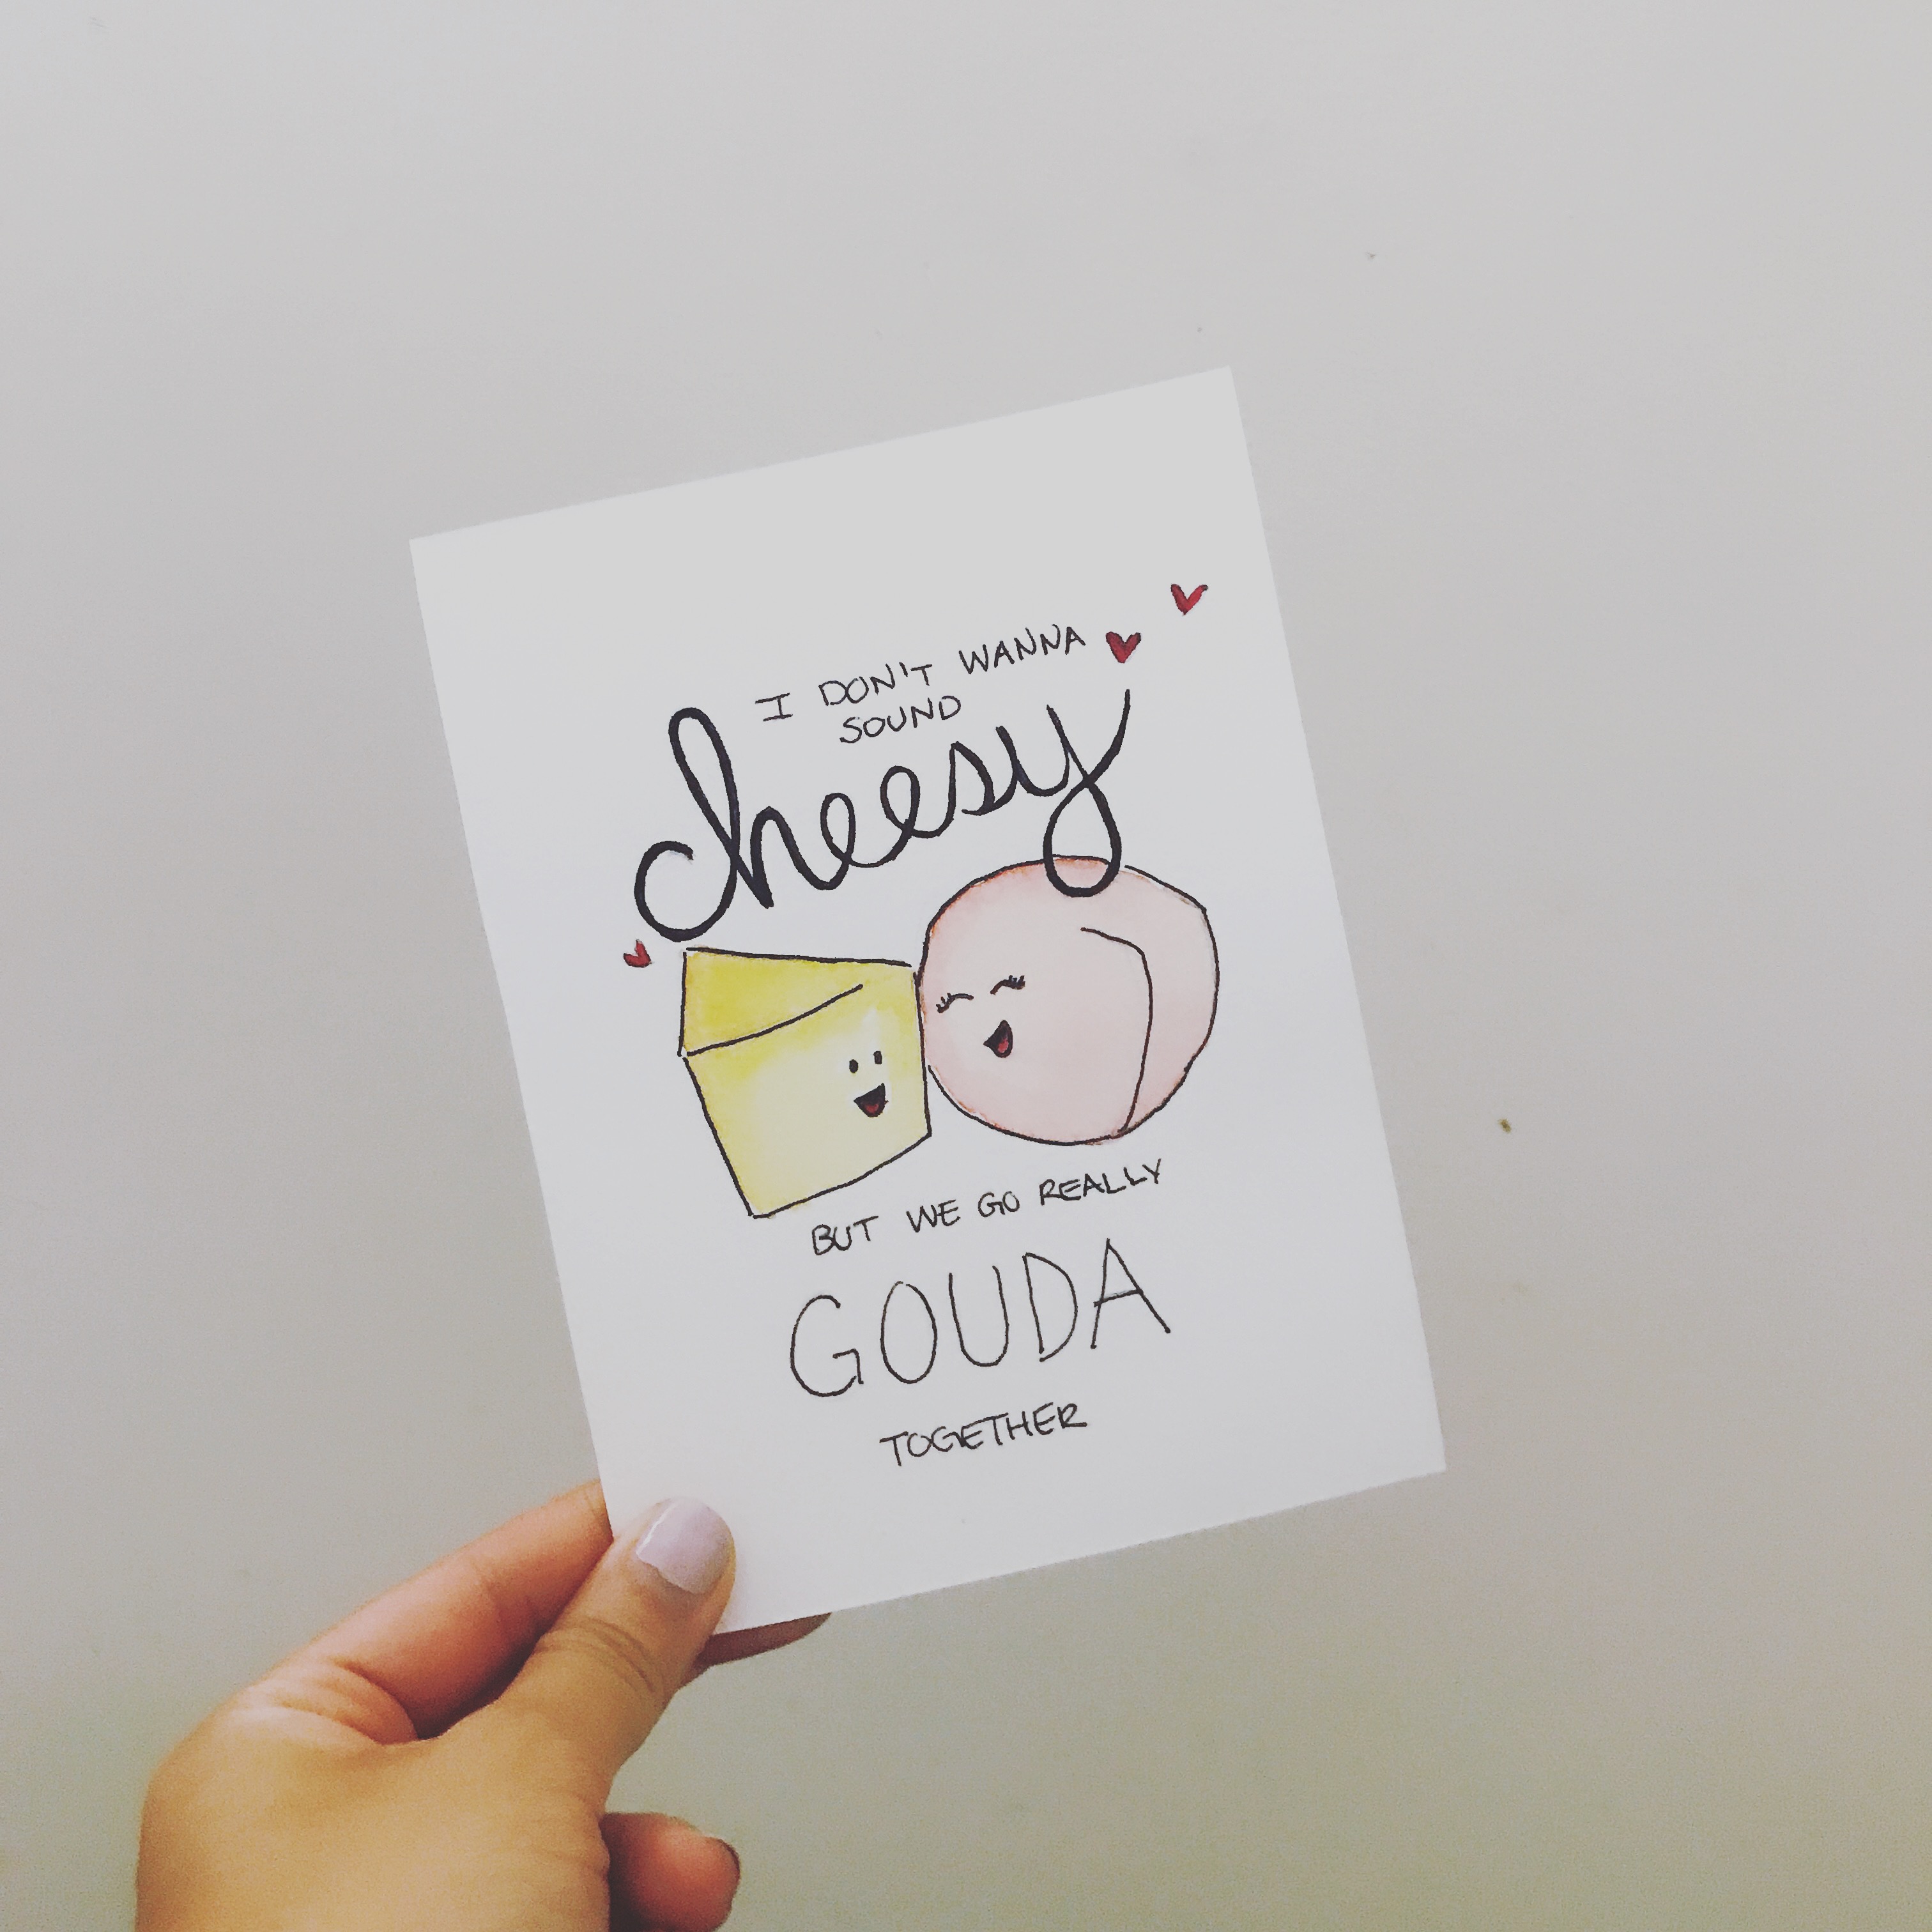 I DON'T WANNA
SOUND
cheesy
BUT WE GO REALLY
GOUDA
TOGETHER